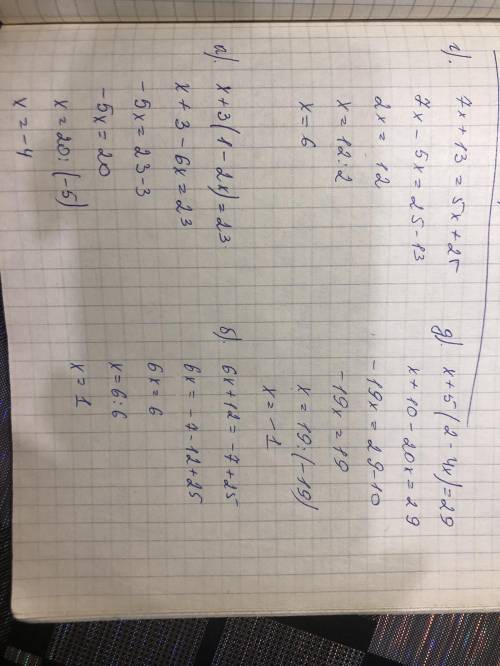 г). 7x + 13 = 5x + 25
7x - 5x = 25 - 13
2x = 12
x = 12:2
x = 6
д). x + 5(2 - 4x) = 29
x + 10 - 20x = 29
-19x = 29-10
-19x = 19
x = 19:(-19)
x = -1
а). x + 3(1 - 2x) = 23
x + 3 - 6x = 23
-5x = 23-3
-5x = 20
x = 20:(-5)
x = -4
б). 6x + 12 = -7 + 25
6x = -7 - 12 + 25
6x = 6
x = 6:6
x = 1